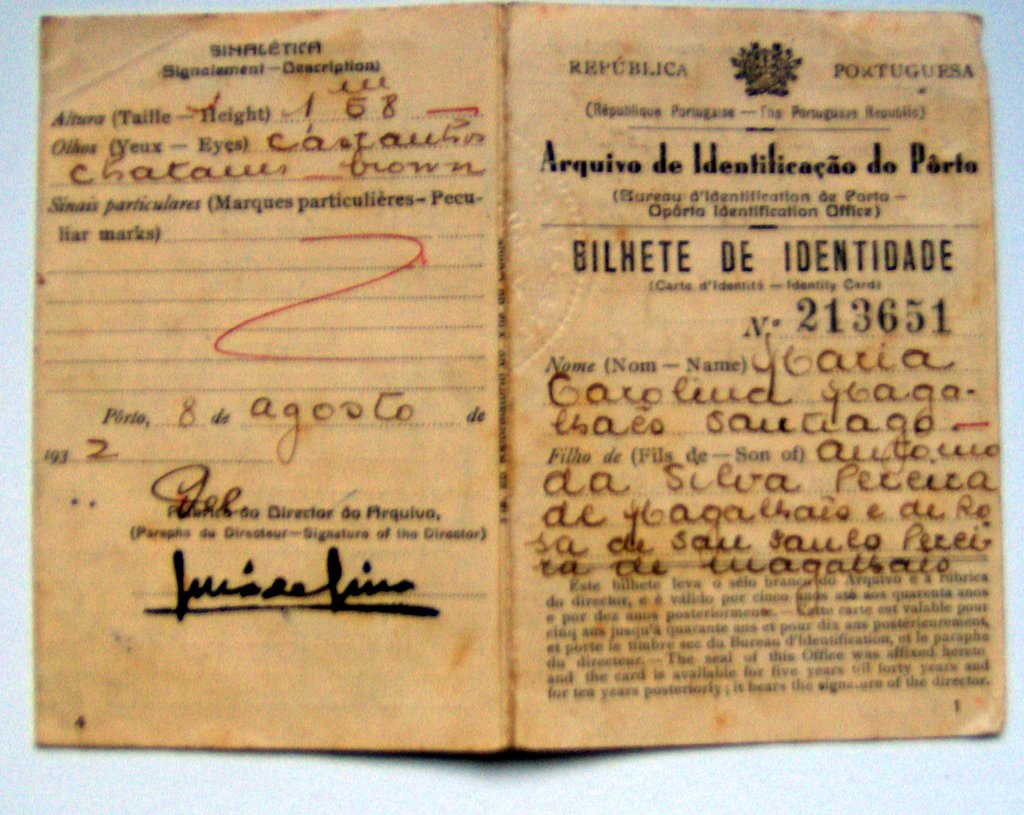 SINALÉTICA
(Signalement — Description)
Altura (Taille — Height) 1m 58
Olhos (Yeux — Eyes) castanhos
chatains brown
Sinais particulares (Marques particulières — Pecu-
liar marks)
Pôrto, 8 de agosto de
1932
Pel
Rubrica do Director do Arquivo,
(Paraphe du Directeur — Signature of the Director)
4
REPÚBLICA PORTUGUESA
(République Portugaise — The Portuguese Republic)
Arquivo de Identificação do Pôrto
(Bureau d'Identification de Porto —
Opôrto Identification Office)
BILHETE DE IDENTIDADE
(Carte d'Identité — Identity Card)
N.º 213651
Nome (Nom — Name) Maria
Carolina Maga-
lhaës Santiago —
Filho de (Fils de — Son of) Antonio
da Silva Pereira
de Magalhaïs e de Ro
sa de San Paulo Perei-
ra de Magalhaïs
Este bilhete leva o sêlo branco do Arquivo e a rubrica
do director, e é válido por cinco anos até aos quarenta anos
e por dez anos posteriormente. — Cette carte est valable pour
cinq ans jusqu'à quarante ans et pour dix ans postérieurement,
et porte le timbre sec du Bureau d'Identification, et le paraphe
du directeur. — The seal of this Office was affixed hereto
and the card is available for five years till forty years and
for ten years posteriorly; it bears the signature of the director.
1